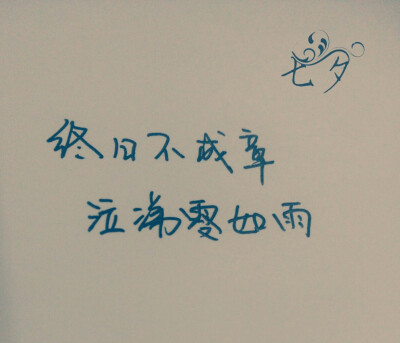 七夕
终日不成章
泣涕零如雨